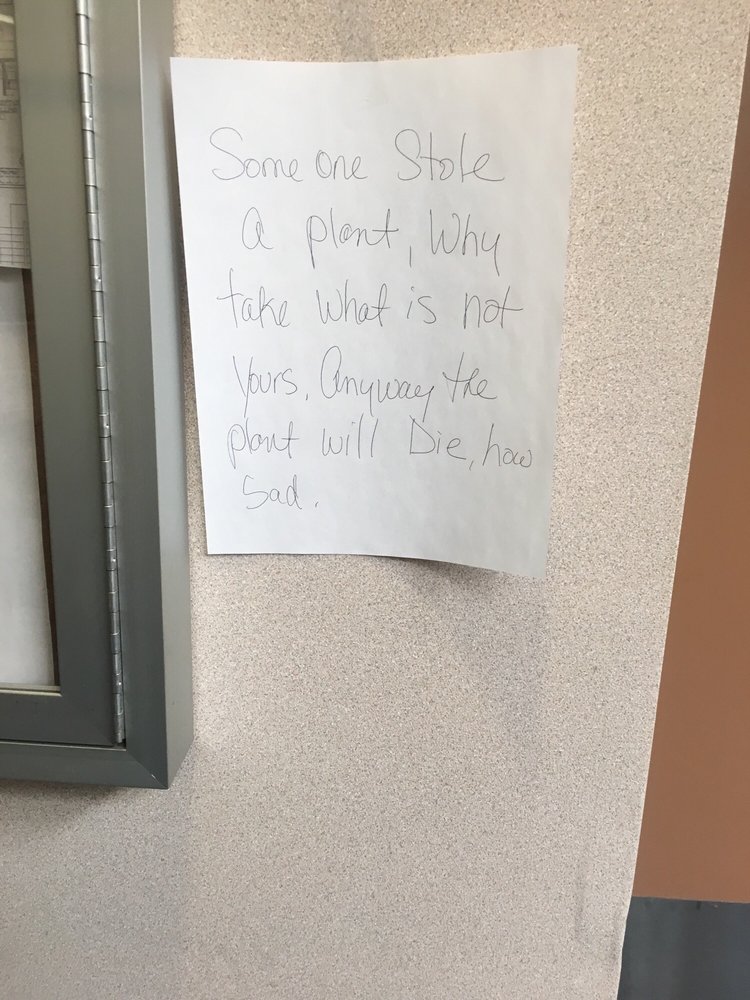 Some one Stole
a plant, Why
take what is not
yours. Anyway the
plant will Die, how
sad.